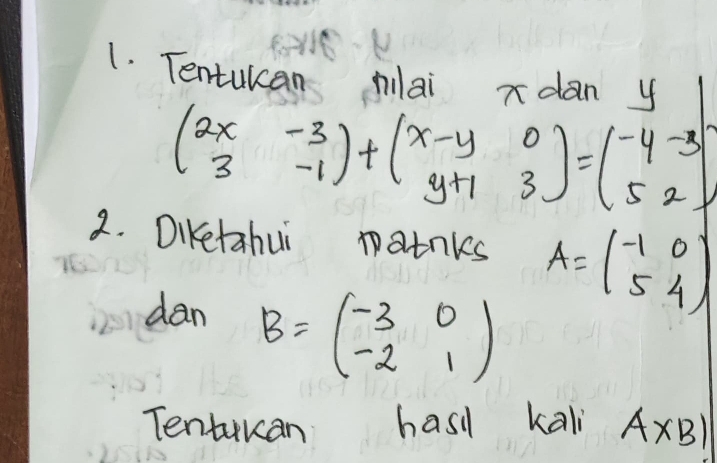 1. Tentukan nilai x dan y
(2x -3) + (x-y 0) = (-4 -3)
(3 -1) (y+1 3) (5 2)
2. Diketahui matriks A = (-1 0)
(5 4)
dan B = (-3 0)
(-2 1)
Tentukan hasil kali AxB